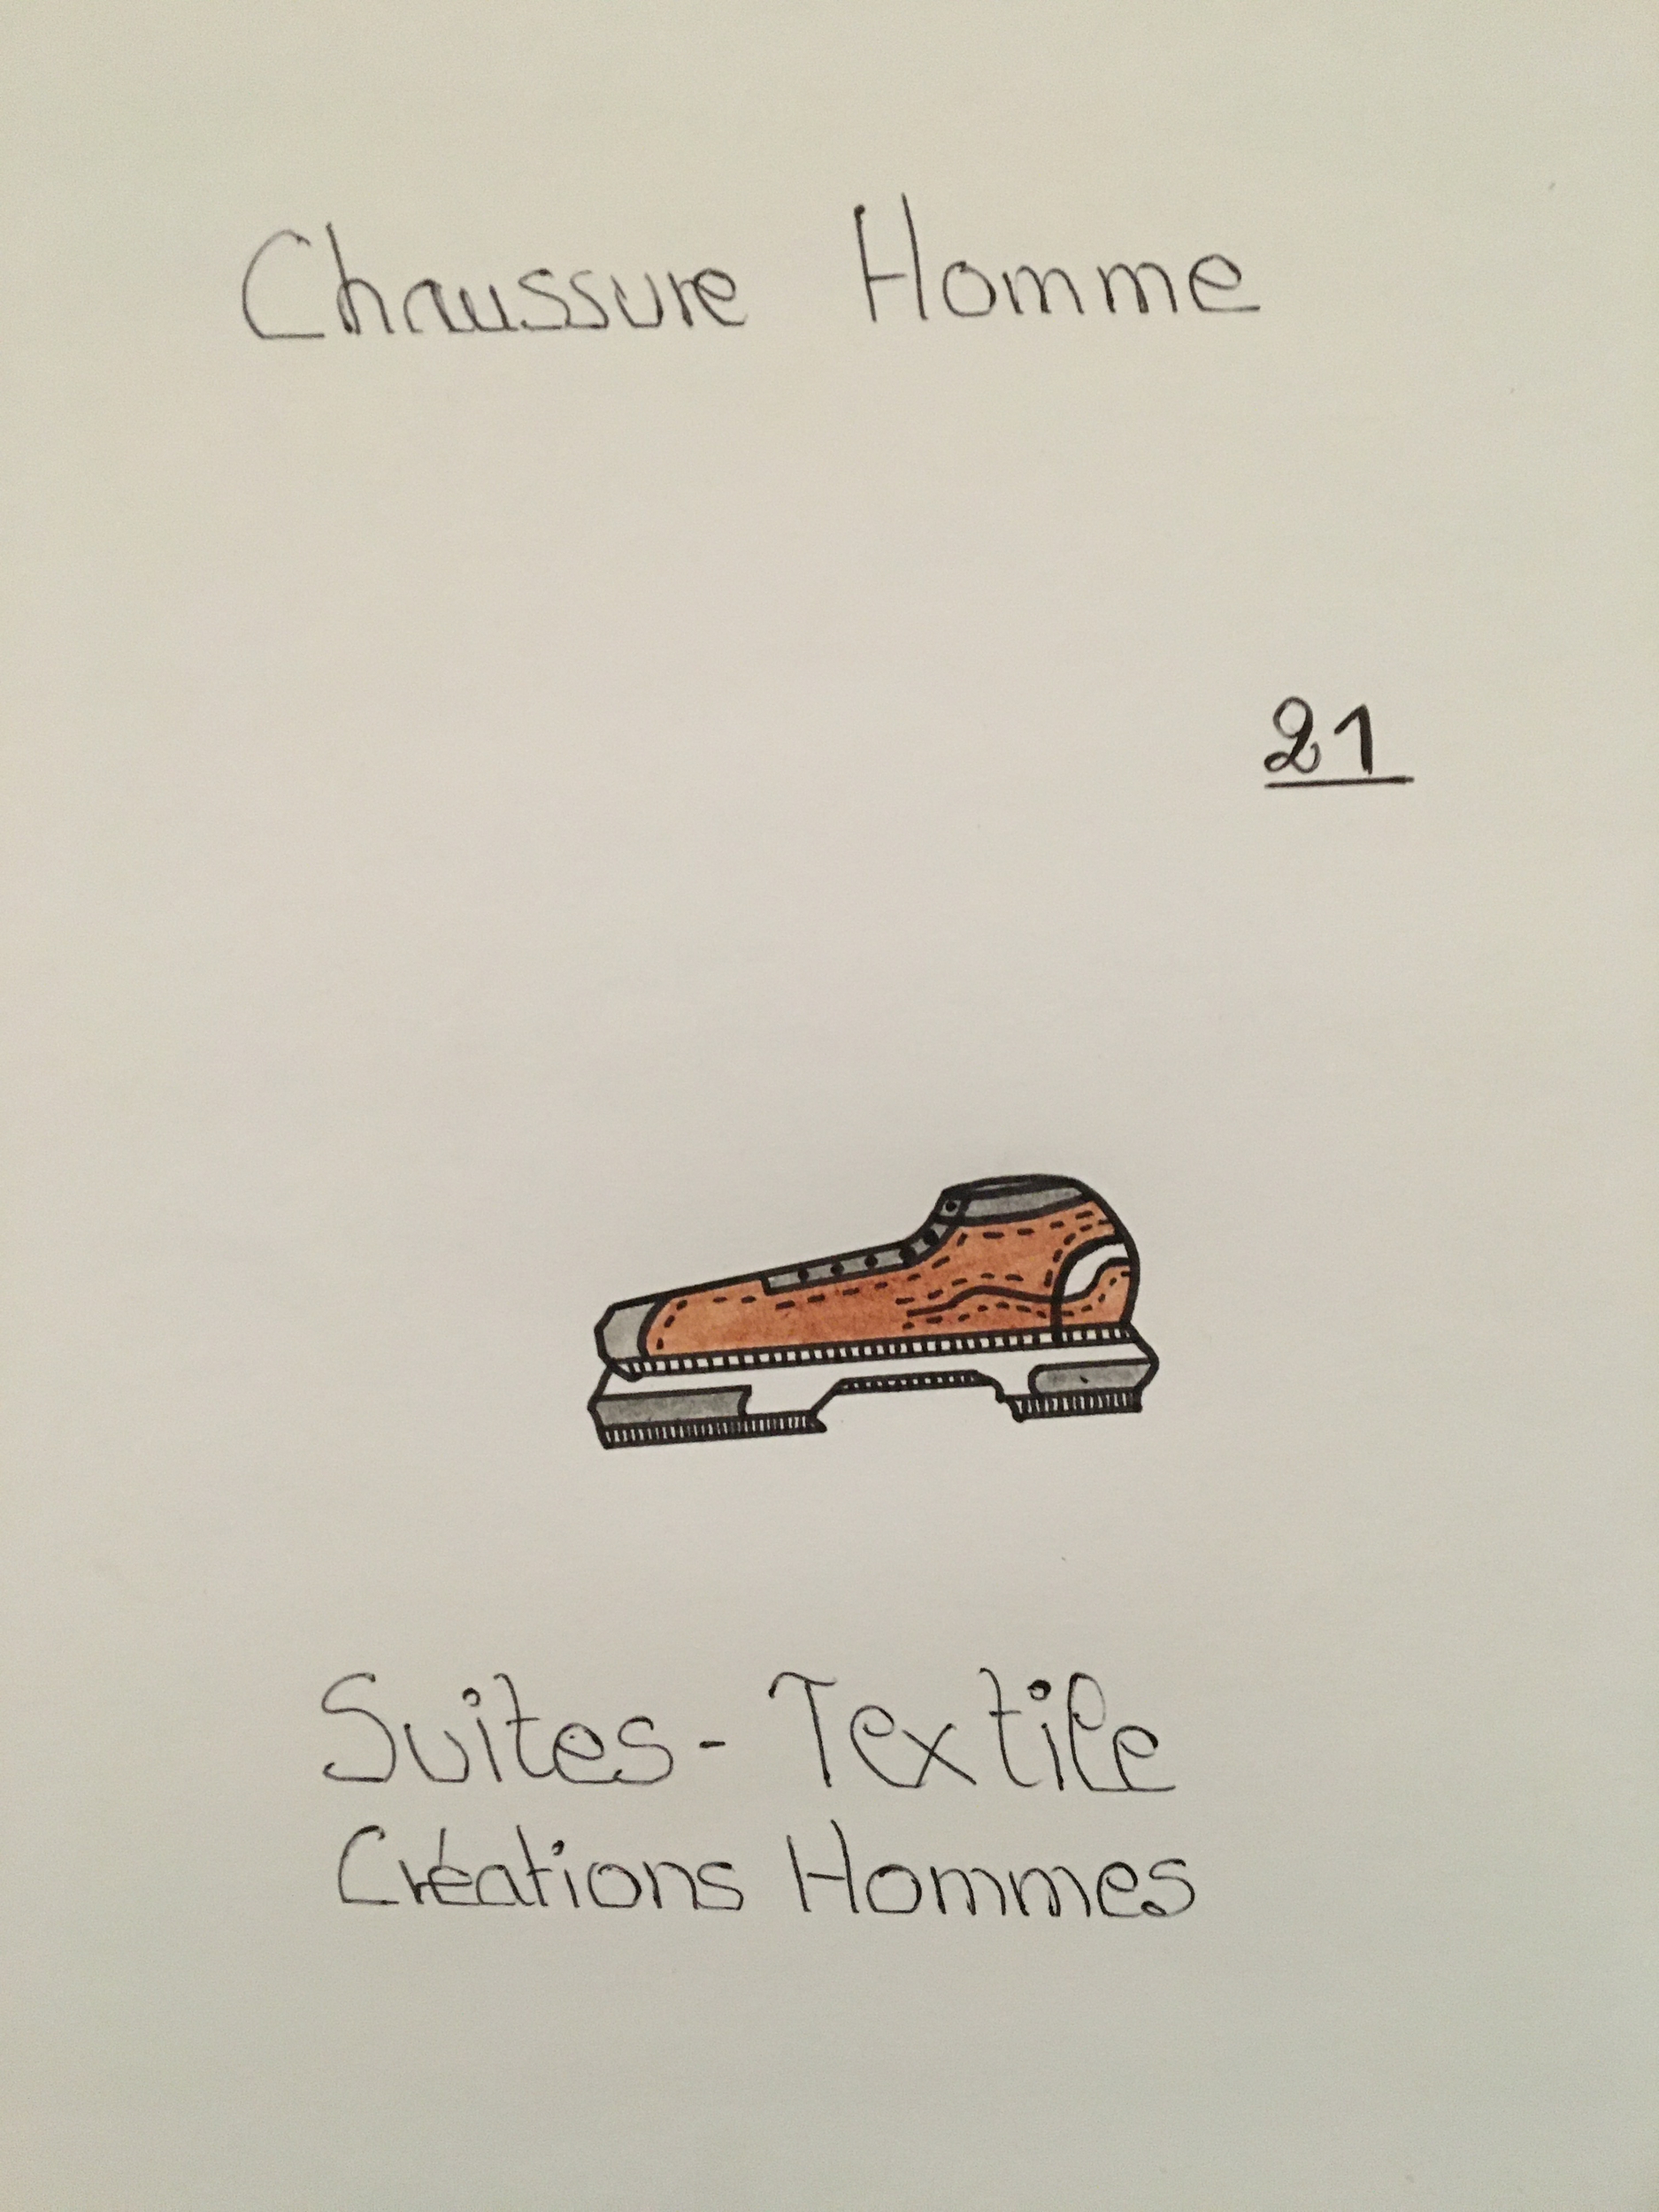 Chaussure Homme
21
Suites-Textile
Créations Hommes